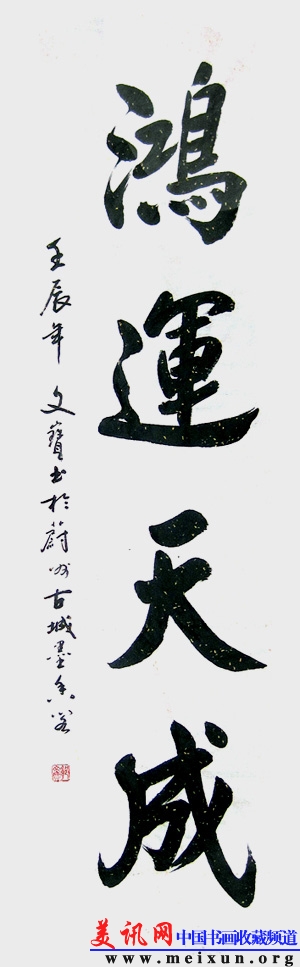 鴻運天成
壬辰年 文寶書於蔚州古城墨香閣
美讯网 中国书画收藏频道
www.meixun.org